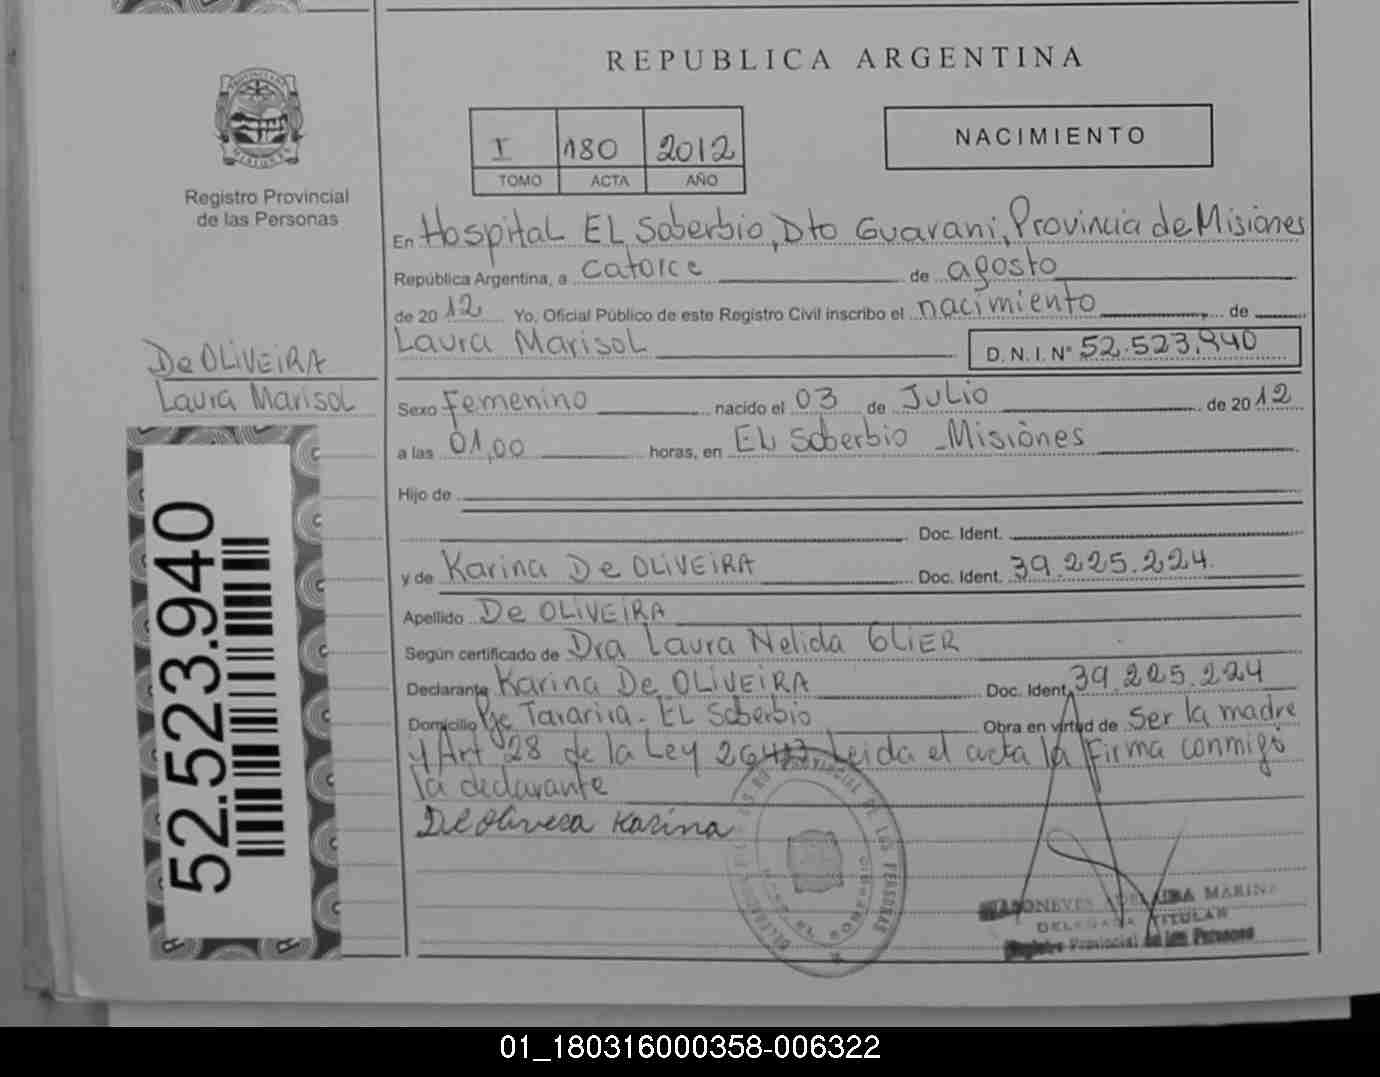 REPUBLICA ARGENTINA
PROVINCIA DE
MISIONES
Registro Provincial
de las Personas
I 180 2012
TOMO ACTA AÑO
NACIMIENTO
En Hospital EL Soberbio, Dto Guarani, Provincia de Misiones
República Argentina, a catorce de agosto
de 2012 Yo, Oficial Público de este Registro Civil inscribo el nacimiento de
Laura Marisol D.N.I. Nº 52.523.940
De OLIVEIRA
Laura Marisol
Sexo Femenino nacido el 03 de Julio de 2012
a las 01,00 horas, en EL Soberbio - Misiones
Hijo de
Doc. Ident.
y de Karina De OLIVEIRA Doc. Ident. 39.225.224
Apellido De OLIVEIRA
Según certificado de Dra Laura Nelida GLIER
Declarante Karina De OLIVEIRA Doc. Ident. 39.225.224
Domicilio Pje Tararira - EL Soberbio Obra en virtud de Ser la madre
y Art 28 de la Ley 26413 Leida el acta la firma conmigo
la declarante
De Olivera Karina
52.523.940
MARINA
DELEGADA TITULAR
Registro Provincial de las Personas
01_180316000358-006322